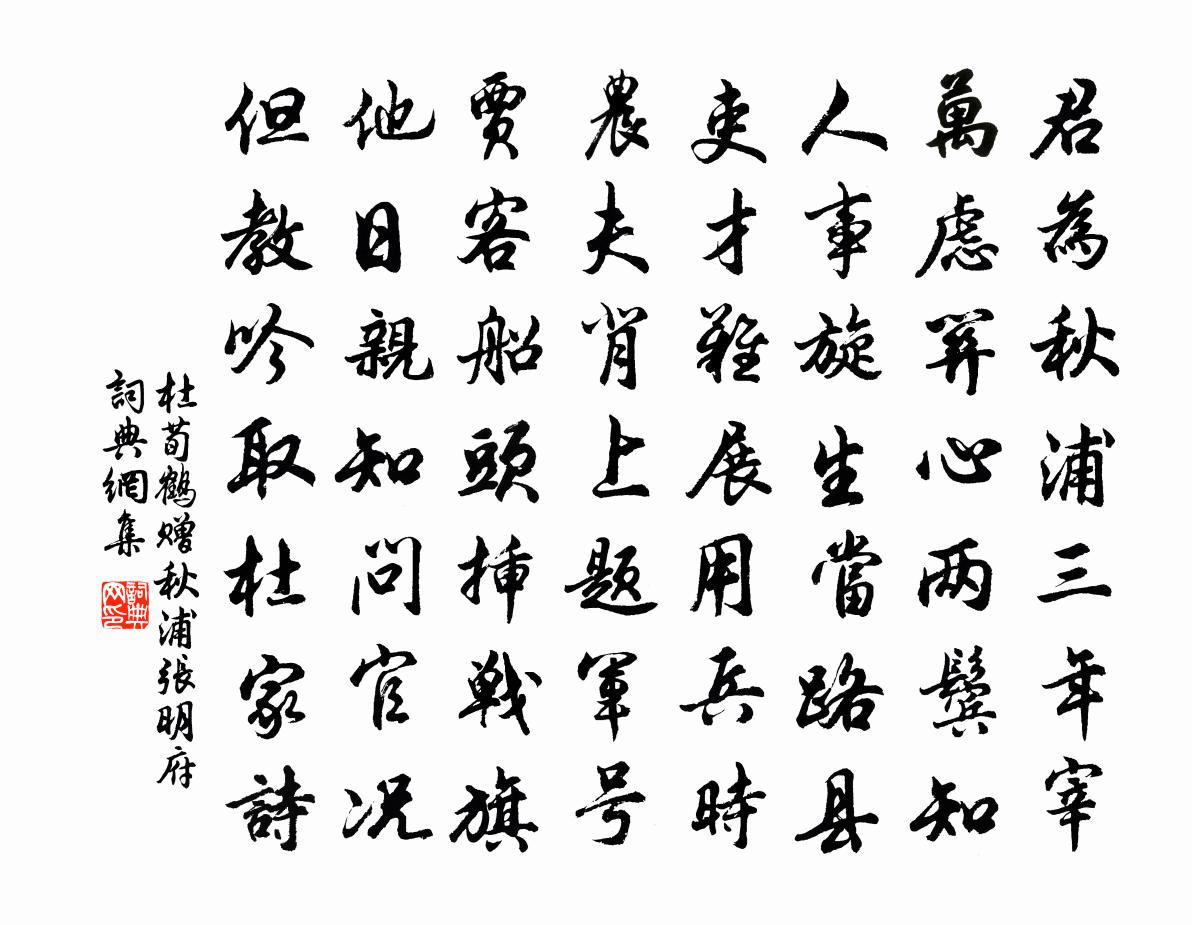 君為秋浦三年宰
萬慮筭心两鬓知
人事旋生當路县
吏才難展用兵時
農夫背上题軍号
賈客船頭揷戦旗
他日親知問官况
但教吟取杜家詩
杜荀鶴赠秋浦張明府
詞典網集
詞典网印